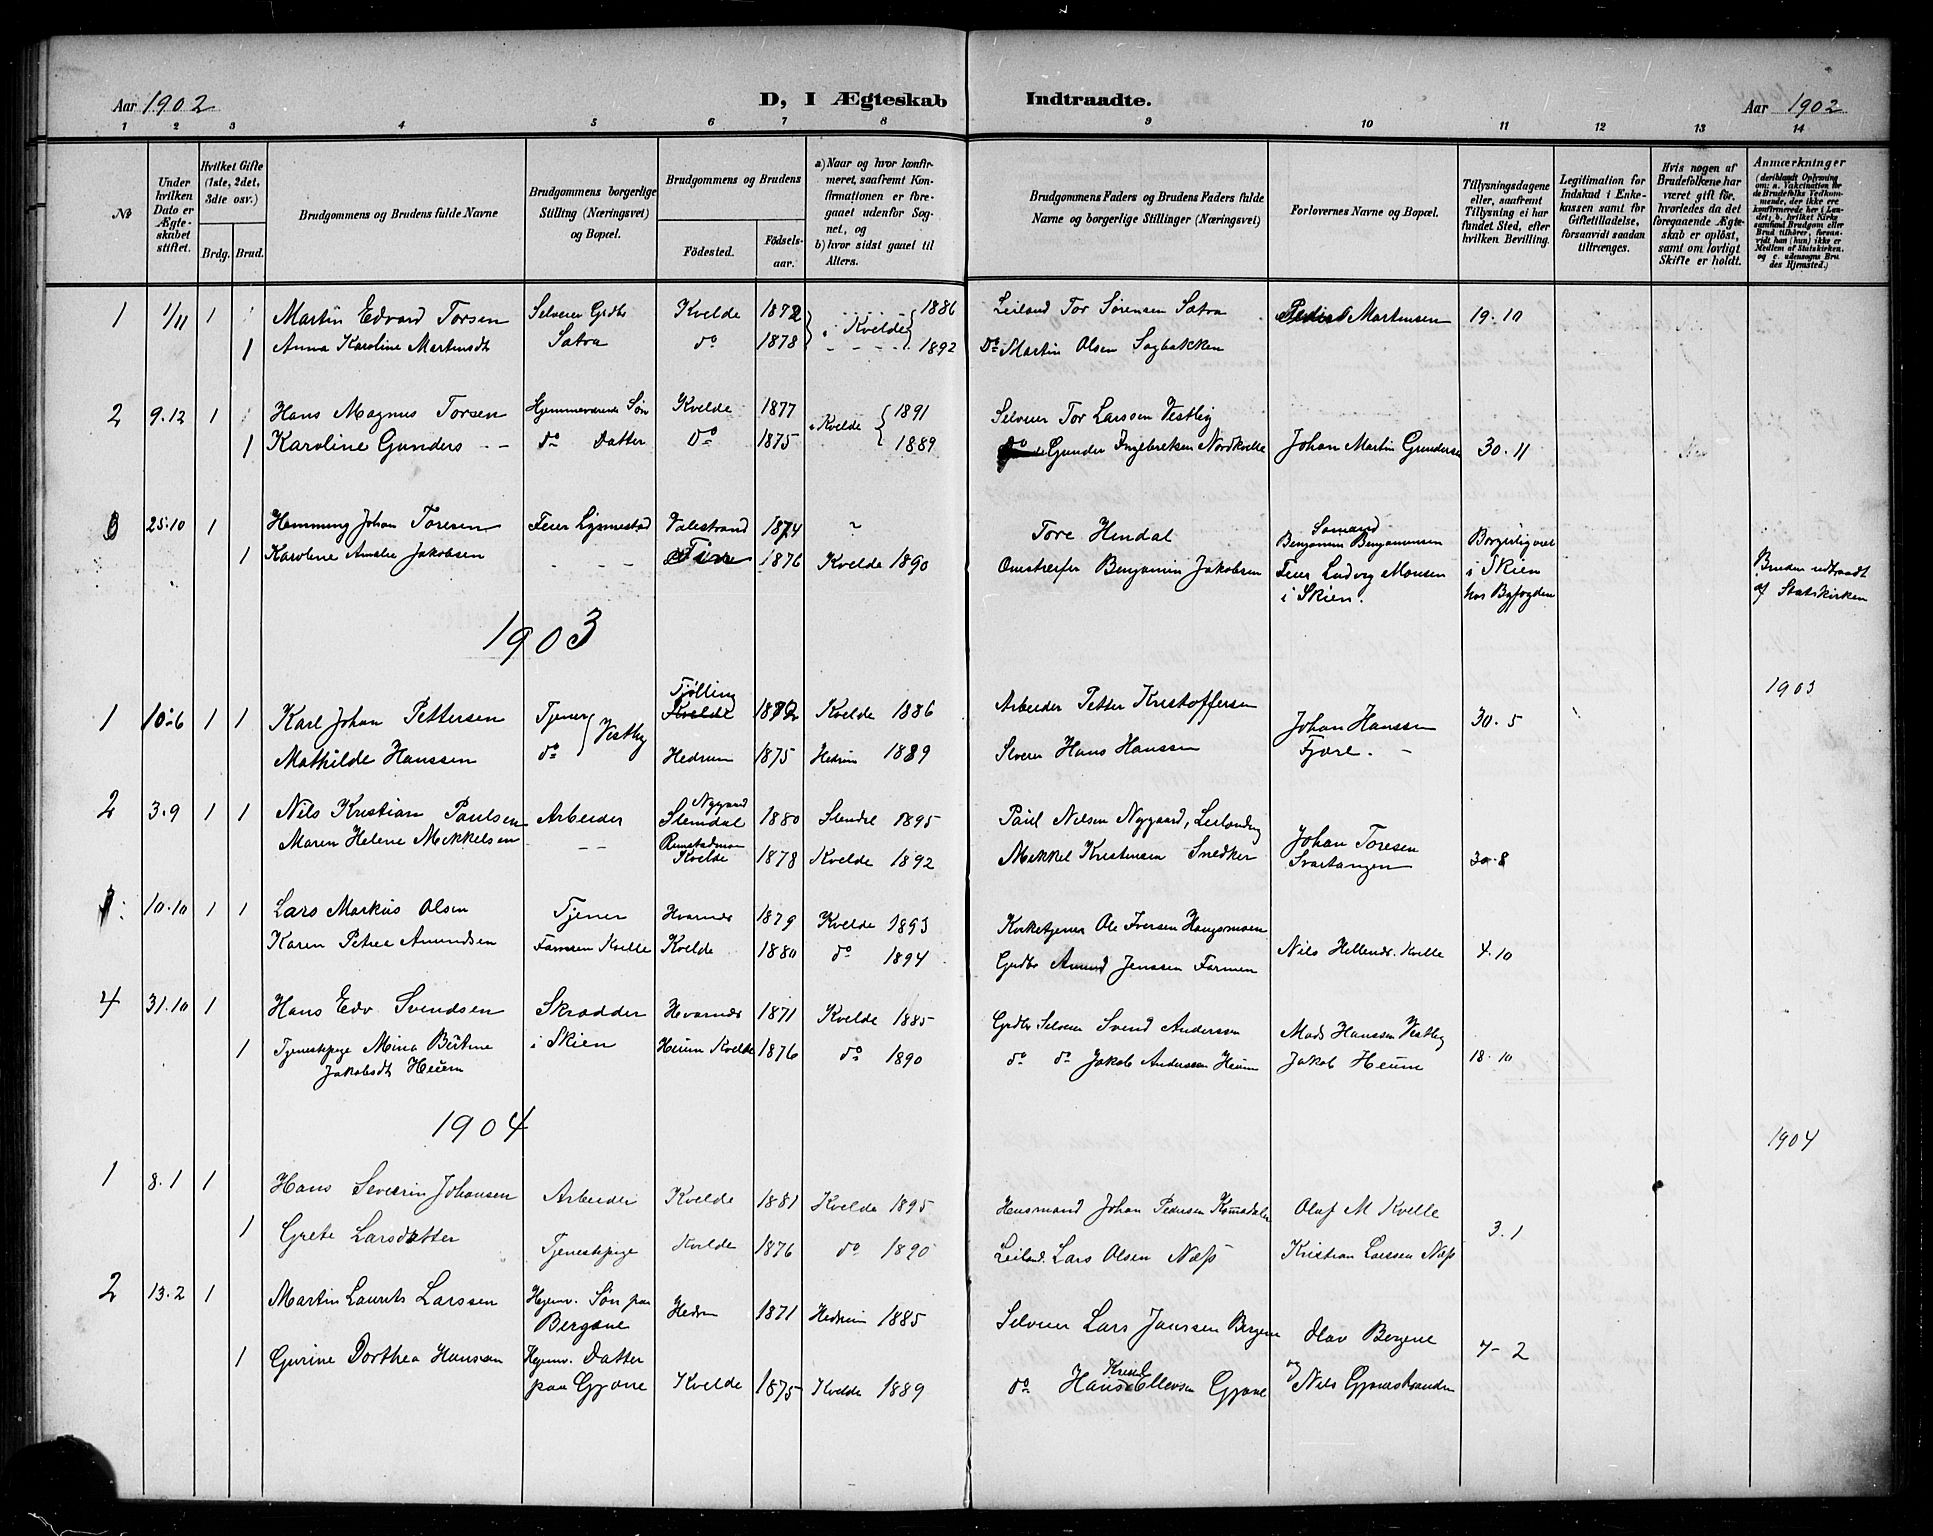 Aar 1902
D, I Ægteskab Indtraadte.
Aar 1902
1 2 3 4 5 6 7 8 9 10 11 12 13 14
No
Under hvilken Dato er Ægteskabet stiftet.
Hvilket Gifte (1ste, 2det, 3die osv.)
Brdg. Brud.
Brudgommens og Brudens fulde Navne
Brudgommens borgerlige Stilling (Næringsvei) og Bopæl.
Brudgommens og Brudens
Födested.
Födselsaar.
a) Naar og hvor konfirmeret, saafremt Konfirmationen er foregaaet udenfor Sognet, og
b) hvor sidst gaaet til Alters.
Brudgommens Faders og Brudens Faders fulde Navne og borgerlige Stillinger (Næringsvei)
Forlovernes Navne og Bopæl.
Tillysningsdagene eller, saafremt Tillysning ei har fundet Sted, efter hvilken Bevilling.
Legitimation for Indskud i Enkekassen samt for Giftetilladelse, forsaavidt saadan tiltrænges.
Hvis nogen af Brudefolkene har været gift för, hvorledes da det foregaaende Ægteskab er oplöst, samt om lovligt Skifte er holdt.
Anmærkninger (deriblandt Oplysning om: a. Vaccination for de Brudefolks Vedkommende, der ikke ere konfirmerede her i Landet; b. hvilket Kirkesamfund Brudgom eller Brud tilhører, forsaavidt han (hun) ikke er Medlem af Statskirken, og c. udensogns Brudes Hjemsted.)
1 1/11 1 Martin Edvard Torsen Selveier Grdbr Kvelde 1872 1886 Leiland Tor Sørensen Satra Martensen 19.10
1 Anna Karoline Martinsdt Satra do 1878 i Kvelde 1892 Do Martin Olsen Sagbakken
2 9.12 1 Hans Magnus Torsen Hjemmeværende Søn Kvelde 1877 i Kvelde 1891 Selveier Tor Larssen Vestby
1 Karoline Gunders - - do Datter Do 1875 1889 do Gunder Ingebretsen Nordkvelle Johan Martin Gundersen 30.11
3 25.10 1 Hemming Johan Toresen Feier Valestrand 1874 Tore Hendal Benjamin Benjaminsen Borgerlig viet
1 Karoline Amalie Jakobsen - - - 1876 Kvelde 1890 Omstreifer Benjamin Jakobsen Feier Ludvig Monsen i Skien. i Skien hos Byfogden
Bruden udtraadt af Statskirken
1903
1903
1 10.6 1 1 Karl Johan Pettersen Tjener Vestby Tjølling Kvelde 1872 Kvelde 1886 Arbeider Petter Kristoffersen Johan Hanssen 30.5
Mathilde Hanssen do Hedrum 1875 Hedrum 1889 Selveier Hans Hanssen Fjære. -
2 3.9 1 1 Nils Kristian Paulsen Arbeider Nygaard Slemdal 1880 Slemdal 1895 Paul Nilsen Nygaard, Leilending Johan Toresen
Maren Helene Mikkelsen - - Kvelde 1878 Kvelde 1892 Mikkel Kristensen Snedker Svartangen 30.8
10.10 1 1 Lars Markus Olsen Tjener Hvarnes 1879 Kvelde 1893 Kirketjener Ole Iversen Haugsmoen
Karen Petrea Amundsen Farmen Kvelle Kvelde 1880 do 1894 Grdbr Amund Jenssen Farmen Nils Hellends. Kvelle 4.10
4 31.10 1 Hans Edv Svendsen Skrædder Hvarnes 1871 Kvelde 1885 Grdbr Selveier Svend Anderssen Mads Hanssen Vestby
1 Tjenestepige Mina Bertine i Skien Heum Kvelde 1876 do 1890 do do Jakob Anderssen Heum Jakob Heum 18.10
Jakobsdt Heum
1904
1904
1 8.1 1 Hans Severin Johansen Arbeider Kvelde 1881 Kvelde 1895 Husmand Johan Pedersen Olaf M Kvelle 3.1
1 Grete Larsdatter Tjenestepige Kvelde 1876 do 1890 Leiland. Lars Olsen Næss Kristian Larssen Næss
2 13.2 1 Martin Laurits Larssen Hjemv. Søn paa Bergene Hedrum 1871 Hedrum 1885 Selveier Lars Janssen Bergene Olav Bergene 7-2
1 Gurine Dorthea Hansen Hjemv. Datter paa Gjone Kvelde 1875 Kvelde 1889 do Hans Ellevsen Gjone og Nils Gjonestranden